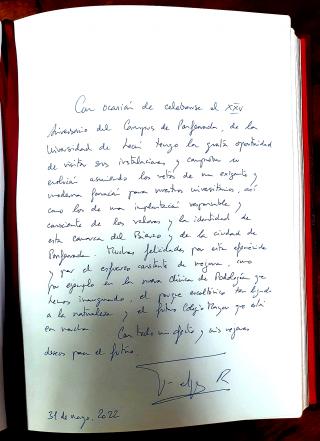 Con ocasión de celebrarse el XXV
Aniversario del Campus de Ponferrada, de la
Universidad de León tengo la grata oportunidad
de visitar sus instalaciones y comprobar su
evolución asumiendo los retos de una exigente y
moderna formación para nuestros universitarios, así
como los de una implantación responsable y
consciente de los valores y la identidad de
esta comarca del Bierzo y de la ciudad de
Ponferrada. Muchas felicidades por esta efeméride
y por el esfuerzo constante de mejora, como
por ejemplo en la nueva Clínica de Podología que
hemos inaugurado, el parque escultórico tan ligado
a la naturaleza y el futuro Colegio Mayor que está
en marcha. Con todo mi afecto y mis mejores
deseos para el futuro
Felipe R
31 de mayo, 2022